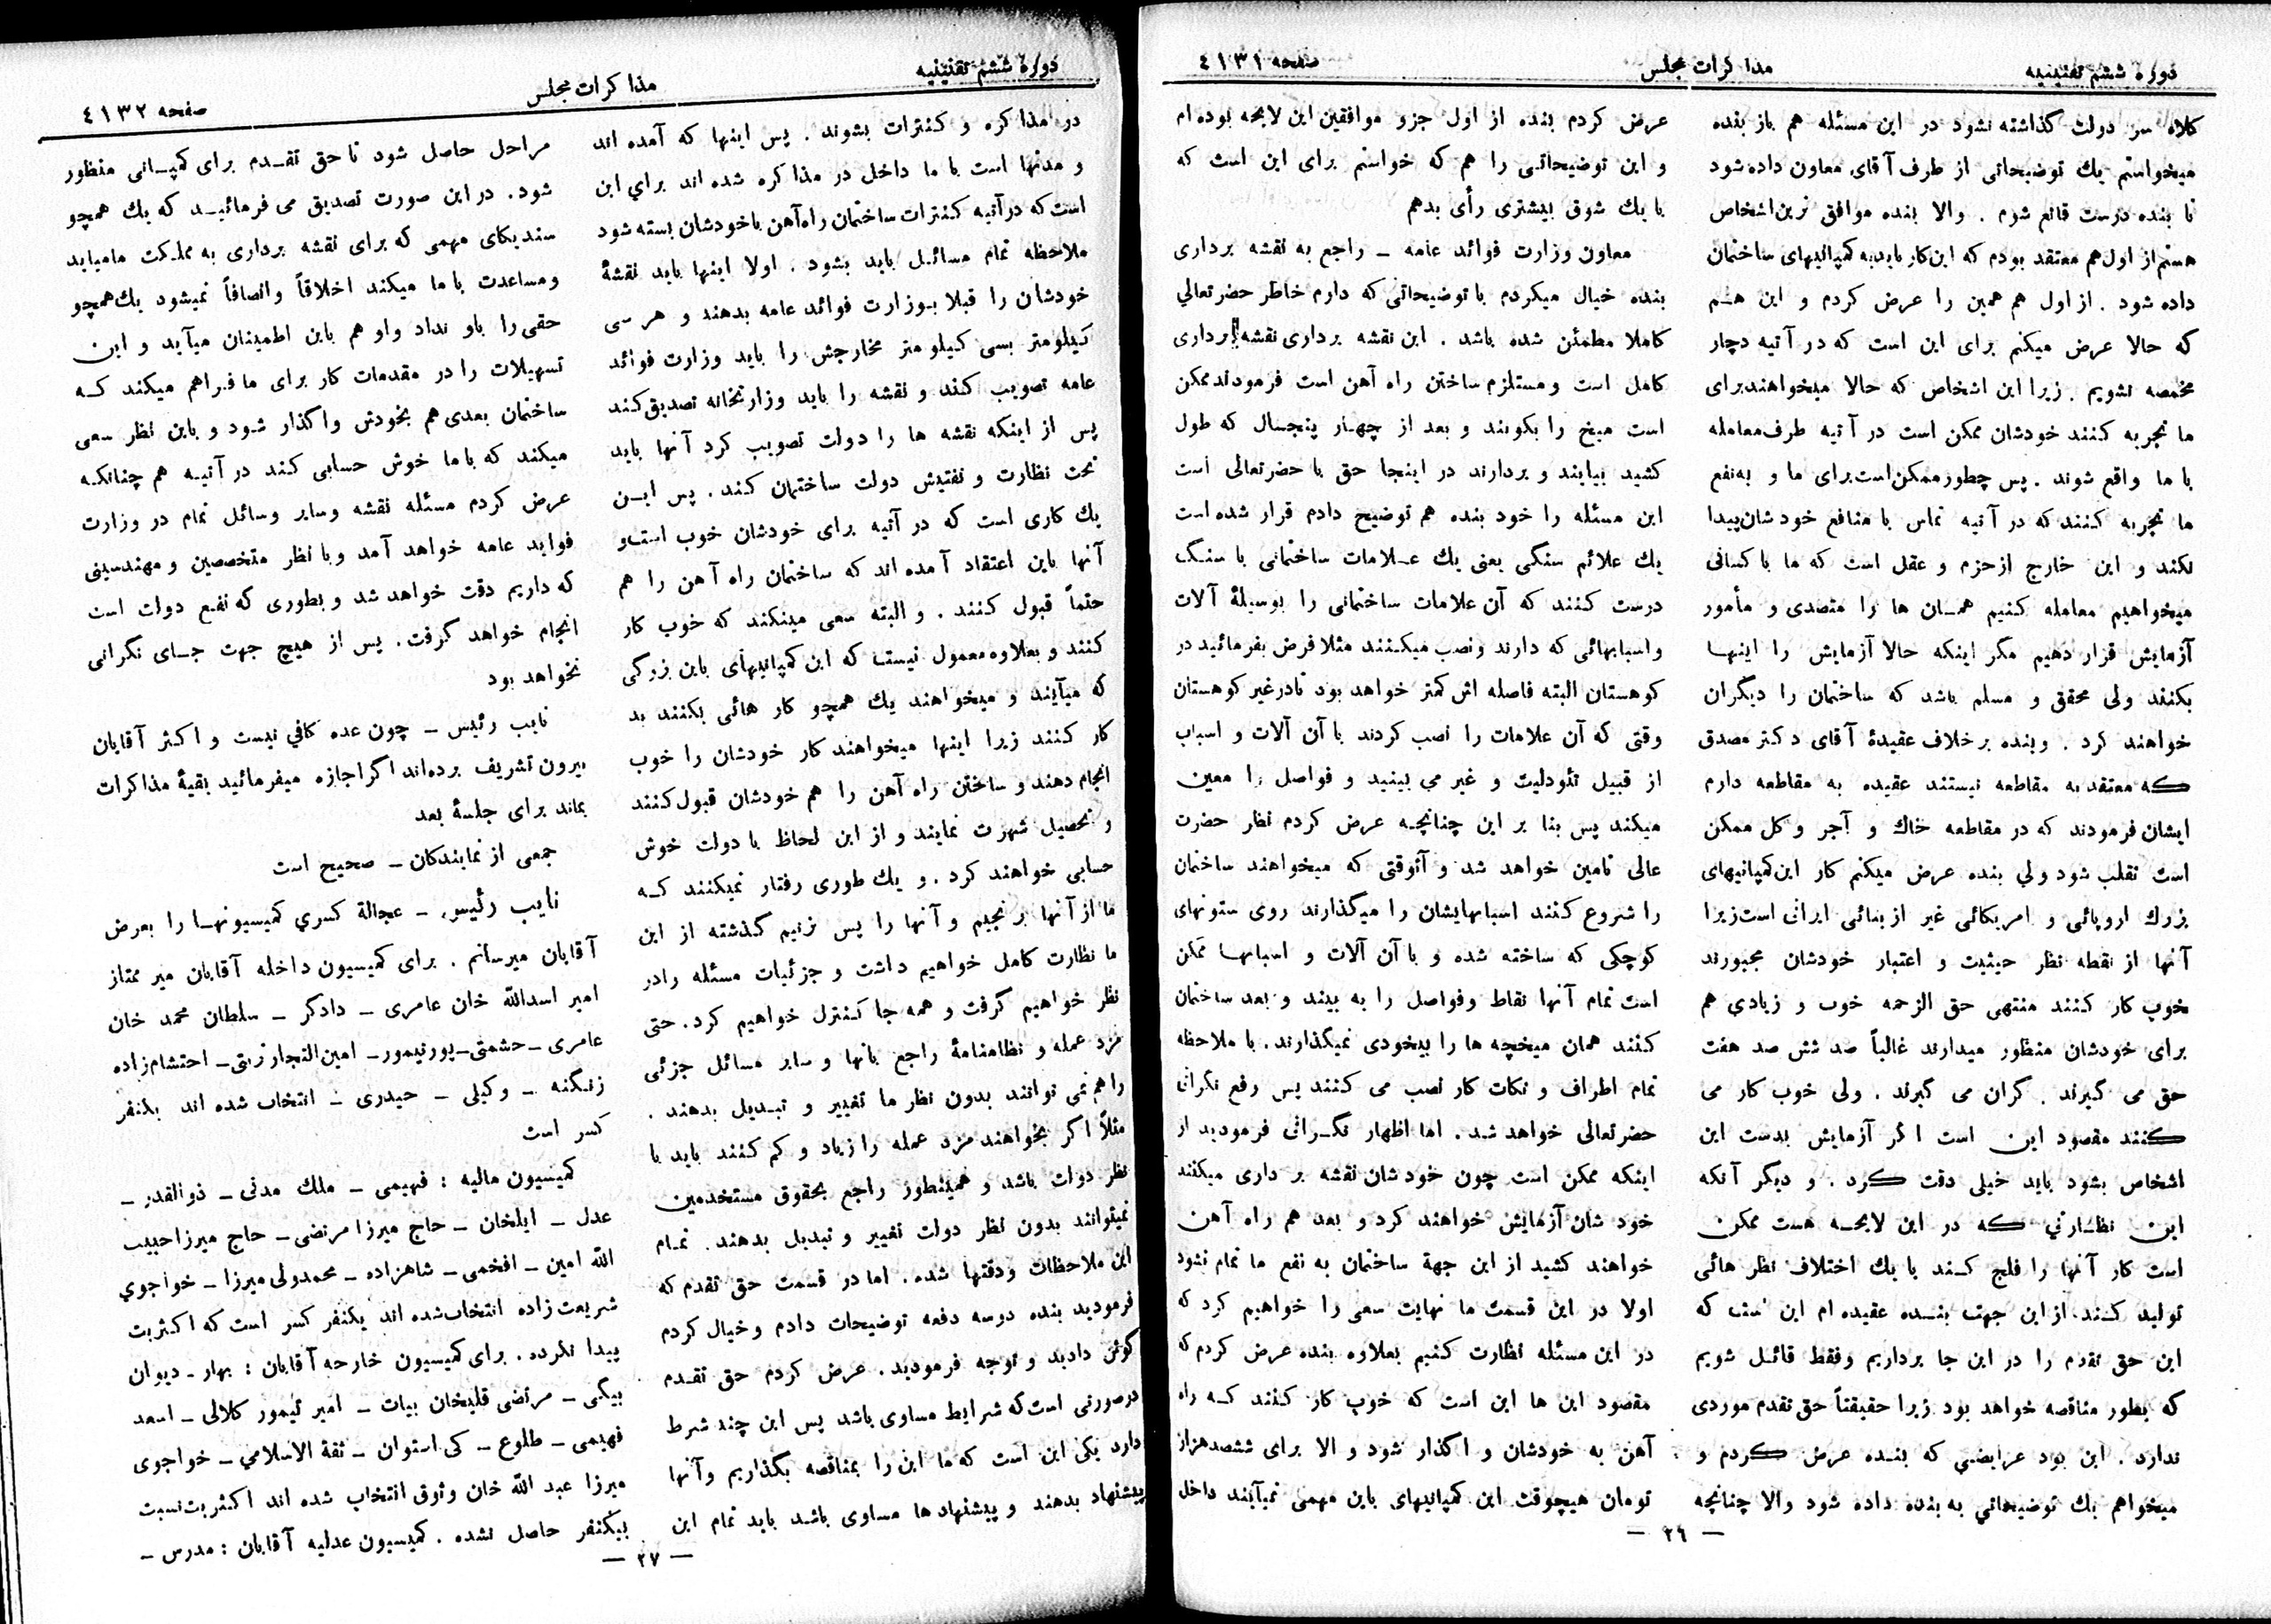 دوره ششم تقنینیه
مذاکرات مجلس
صفحه ٤١٣١
کلاه سر دولت گذاشته نشود در این مسئله هم باز بنده
میخواستم یك توضیحاتی از طرف آقای معاون داده شود
تا بنده درست قانع شوم . والا بنده موافق ترین اشخاص
هستم از اول هم معتقد بودم که این کار باید به کمپانیهای ساختمان
داده شود . از اول هم همین را عرض کردم و این هم
که حالا عرض میکنم برای این است که در آتیه دچار
مخمصه نشویم . زیرا این اشخاص که حالا میخواهند برای
ما تجربه کنند خودشان ممکن است در آتیه طرف معامله
با ما واقع شوند . پس چطور ممکن است برای ما و به نفع
ما تجربه کنند که در آتیه تماس با منافع خودشان پیدا
نکند و این خارج از حزم و عقل است که ما با کسانی
میخواهیم معامله کنیم همان ها را متصدی و مأمور
آزمایش قرار دهیم مگر اینکه حالا آزمایش را اینها
بکنند ولی محقق و مسلم باشد که ساختمان را دیگران
خواهند کرد . و بنده برخلاف عقیدهٔ آقای دکتر مصدق
که معتقد به مقاطعه نیستند عقیده به مقاطعه دارم
ایشان فرمودند که در مقاطعه خاك و آجر و کل ممکن
است تقلب شود ولی بنده عرض میکنم کار این کمپانیهای
بزرك اروپائی و امریکائی غیر از بنائی ایرانی است زیرا
آنها از نقطه نظر حیثیت و اعتبار خودشان مجبورند
خوب کار کنند منتهی حق الزحمه خوب و زیادی هم
برای خودشان منظور میدارند غالباً صد شش صد هفت
حق می گیرند . گران می گیرند . ولی خوب کار می
کنند مقصود این است اگر آزمایش بدست این
اشخاص بشود باید خیلی دقت کرد . و دیگر آنکه
این نظارتی که در این لایحه هست ممکن
است کار آنها را فلج کند با یك اختلاف نظر هائی
تولید کند از این جهت بنده عقیده ام این است که
این حق تقدم را در این جا برداریم وفقط قائل شویم
که بطور مناقصه خواهد بود زیرا حقیقتاً حق تقدم موردی
ندارد . این بود عرایضی که بنده عرض کردم و
میخواهم یك توضیحاتی به بنده داده شود والا چنانچه
عرض کردم بنده از اول جزو موافقین این لایحه بوده ام
و این توضیحاتی را هم که خواستم برای این است که
با یك شوق بیشتری رأی بدهم
معاون وزارت فوائد عامه – راجع به نقشه برداری
بنده خیال میکردم با توضیحاتی که دارم خاطر حضرتعالی
کاملا مطمئن شده باشد . این نقشه برداری نقشه برداری
کامل است و مستلزم ساختن راه آهن است فرمودند ممکن
است میخ را بکوبند و بعد از چهار پنجسال که طول
کشید بیایند و بردارند در اینجا حق با حضرتعالی است
این مسئله را خود بنده هم توضیح دادم قرار شده است
یك علائم سنگی یعنی یك علامات ساختمانی با سنگ
درست کنند که آن علامات ساختمانی را بوسیلهٔ آلات
و اسبابهائی که دارند ونصب میکنند مثلا فرض بفرمائید در
کوهستان البته فاصله اش کمتر خواهد بود تا در غیر کوهستان
وقتی که آن علامات را نصب کردند با آن آلات و اسباب
از قبیل تئودلیت و غیر می بینید و فواصل را معین
میکند پس بنا بر این چنانچه عرض کردم نظر حضرت
عالی تامین خواهد شد و آنوقتی که میخواهند ساختمان
را شروع کنند اسبابهایشان را میگذارند روی ستونهای
کوچکی که ساخته شده و با آن آلات و اسبابها ممکن
است تمام آنها نقاط وفواصل را به بیند و بعد ساختمان
کنند همان میخچه ها را بیخودی نمیگذارند . با ملاحظه
تمام اطراف و نکات کار نصب می کنند پس رفع نگرانی
حضرتعالی خواهد شد . اما اظهار نگرانی فرمودید از
اینکه ممکن است چون خودشان نقشه بر داری میکنند
خود شان آزمایش خواهند کرد و بعد هم راه آهن
خواهند کشید از این جهة ساختمان به نفع ما تمام نشود
اولا در این قسمت ما نهایت سعی را خواهیم کرد که
در این مسئله نظارت کنیم بعلاوه بنده عرض کردم که
مقصود این ها این است که خوب کار کنند که راه
آهن به خودشان و اگذار شود و الا برای ششصدهزار
تومان هیچوقت این کمپانیهای باین مهمی نمیآیند داخل
— ٢٦ —
دوره ششم تقنینیه
مذاکرات مجلس
صفحه ٤١٣٢
در مذاکره و کنترات بشوند . پس اینها که آمده اند
و مدتها است با ما داخل در مذاکره شده اند برای این
است که در آتیه کنترات ساختمان راه آهن با خودشان بسته شود
ملاحظه تمام مسائل باید بشود . اولا اینها باید نقشهٔ
خودشان را قبلا بوزارت فوائد عامه بدهند و هر سی
کیلومتر بسی کیلو متر مخارجش را باید وزارت فوائد
عامه تصویب کند و نقشه را باید وزارتخانه تصدیق کند
پس از اینکه نقشه ها را دولت تصویب کرد آنها باید
تحت نظارت و تفتیش دولت ساختمان کند . پس این
یك کاری است که در آتیه برای خودشان خوب است و
آنها باین اعتقاد آمده اند که ساختمان راه آهن را هم
حتماً قبول کنند . و البته سعی میکنند که خوب کار
کنند و بعلاوه معمول نیست که این کمپانیهای باین بزرگی
که میآیند و میخواهند یك همچو کار هائی بکنند بد
کار کنند زیرا اینها میخواهند کار خودشان را خوب
انجام دهند و ساختن راه آهن را هم خودشان قبول کنند
و تحصیل شهرت نمایند و از این لحاظ با دولت خوش
حسابی خواهند کرد . و یك طوری رفتار نمیکنند که
ما از آنها برنجیم و آنها را پس بزنیم گذشته از این
ما نظارت کامل خواهیم داشت و جزئیات مسئله رادر
نظر خواهیم گرفت و همه جا کنترل خواهیم کرد . حتی
مزد عمله و نظامنامهٔ راجع بانها و سایر مسائل جزئی
را هم نمی توانند بدون نظر ما تغییر و تبدیل بدهند .
مثلاً اگر بخواهند مزد عمله را زیاد و کم کنند باید با
نظر دولت باشد و همینطور راجع بحقوق مستخدمین
نمیتوانند بدون نظر دولت تغییر و تبدیل بدهند . تمام
این ملاحظات ودقتها شده . اما در قسمت حق تقدم که
فرمودید بنده دوسه دفعه توضیحات دادم و خیال کردم
گوش دادید و توجه فرمودید . عرض کردم حق تقدم
درصورتی است که شرایط مساوی باشد پس این چند شرط
دارد یکی این است که ما این را بمناقصه بگذاریم و آنها
پیشنهاد بدهند و پیشنهادها مساوی باشد باید تمام این
مراحل حاصل شود تا حق تقدم برای کمپانی منظور
شود . در این صورت تصدیق می فرمائید که یك همچو
سندیکای مهمی که برای نقشه برداری به مملکت ما میاید
و مساعدت با ما میکند اخلاقاً و انصافاً نمیشود یك همچو
حقی را باو نداد واو هم باین اطمینان میآید و این
تسهیلات را در مقدمات کار برای ما فراهم میکند که
ساختمان بعدی هم بخودش واگذار شود و باین نظر سعی
میکند که با ما خوش حسابی کند در آتیه هم چنانکه
عرض کردم مسئله نقشه وسایر وسائل تمام در وزارت
فواید عامه خواهد آمد وبا نظر متخصصین و مهندسینی
که داریم دقت خواهد شد و بطوری که نفع دولت است
انجام خواهد گرفت . پس از هیچ جهت جای نگرانی
نخواهد بود
نایب رئیس – چون عده کافی نیست و اکثر آقایان
بیرون تشریف برده اند اگر اجازه میفرمائید بقیهٔ مذاکرات
بماند برای جلسهٔ بعد
جمعی از نمایندکان – صحیح است
نایب رئیس – عجالة کسری کمیسیونها را بعرض
آقایان میرسانم . برای کمیسیون داخله آقایان میر ممتاز
امیر اسدالله خان عامری – دادگر – سلطان محمد خان
عامری – حشمتی – پورتیمور – امین التجار زیتی – احتشام زاده
زنگنه – وکیلی – حیدری – انتخاب شده اند یکنفر
کسر است
کمیسیون مالیه : فهیمی – ملك مدنی – ذوالقدر –
عدل – ایلخان – حاج میرزا مرتضی – حاج میرزا حبیب
الله امین – افخمی – شاهزاده – محمدولی میرزا – خواجوی
شریعت زاده انتخاب شده اند یکنفر کسر است که اکثریت
پیدا نکرده . برای کمیسیون خارجه آقایان : بهار – دیوان
بیگی – مرتضی قلیخان بیات – امیر تیمور کلالی – اسعد
فهیمی – طلوع – کی استوان – ثقة الاسلامی – خواجوی
میرزا عبد الله خان وثوق انتخاب شده اند اکثریت نسبت
بیکنفر حاصل نشده . کمیسیون عدلیه آقایان : مدرس –
— ٢٧ —